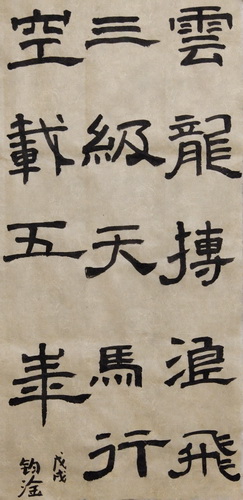 雲龍搏浪飛
三級天馬行
空載五年
戊戌
鈞淦